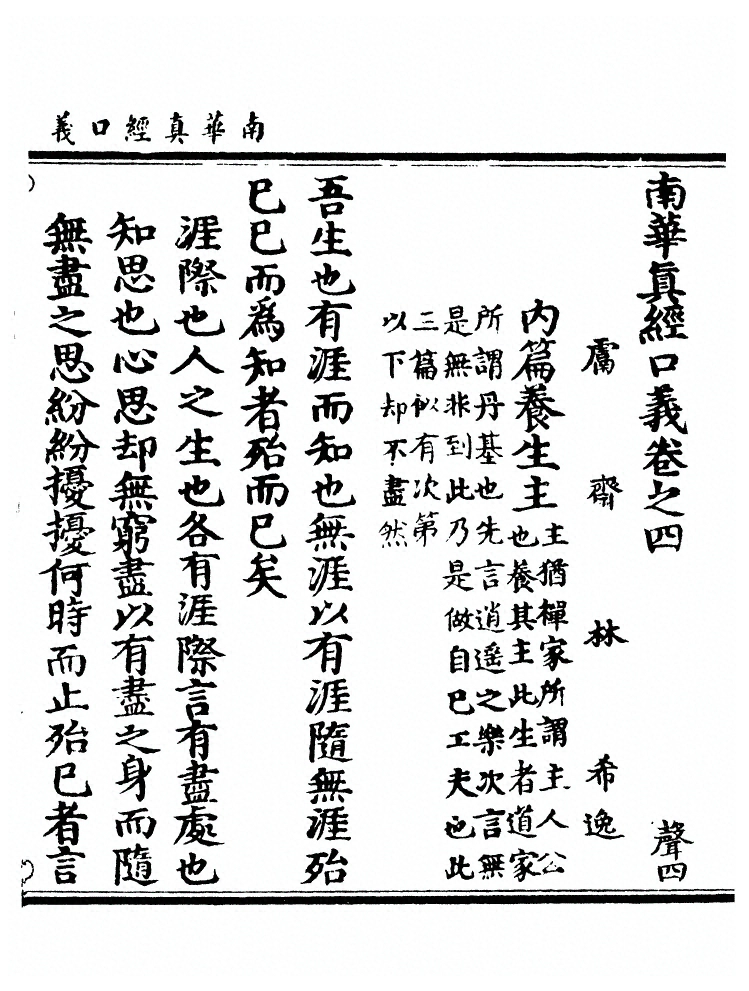 南華真經口義
南華眞經口義卷之四　聲四
鬳齋林希逸
内篇養生主
主猶禪家所謂主人公
也養其主此生者道家
所謂丹基也先言逍遥之樂次言無
是無非到此乃是做自已工夫也此
三篇似有次第
以下却不盡然
吾生也有涯而知也無涯以有涯隨無涯殆
已已而爲知者殆而已矣
涯際也人之生也各有涯際言有盡處也
知思也心思却無窮盡以有盡之身而隨
無盡之思紛紛擾擾何時而止殆已者言